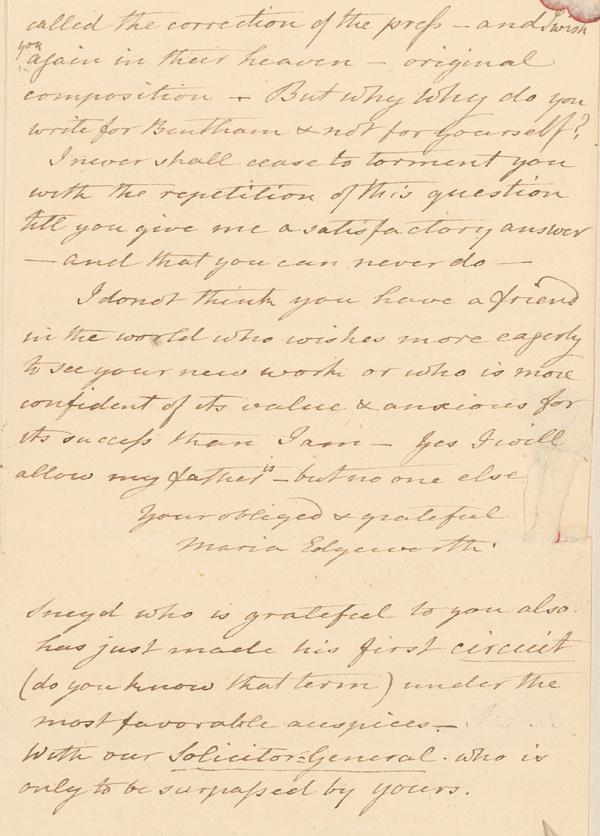 called the correction of the press – and I wish
you
again in their heaven – original
composition – But why why do you
write for Bentham & not for yourself?
I never shall cease to torment you
with the repetition of this question
till you give me a satisfactory answer
– and that you can never do –
I do not think you have a friend
in the world who wishes more eagerly
to see your new work or who is more
confident of its value & anxious for
its success than I am – Yes I will
allow my father is – but no one else
Your obliged & grateful
Maria Edgeworth.
Sneyd who is grateful to you also
has just made his first circuit
(do you know that term) under the
most favorable auspices –
With our Solicitor-General. who is
only to be surpassed by yours.